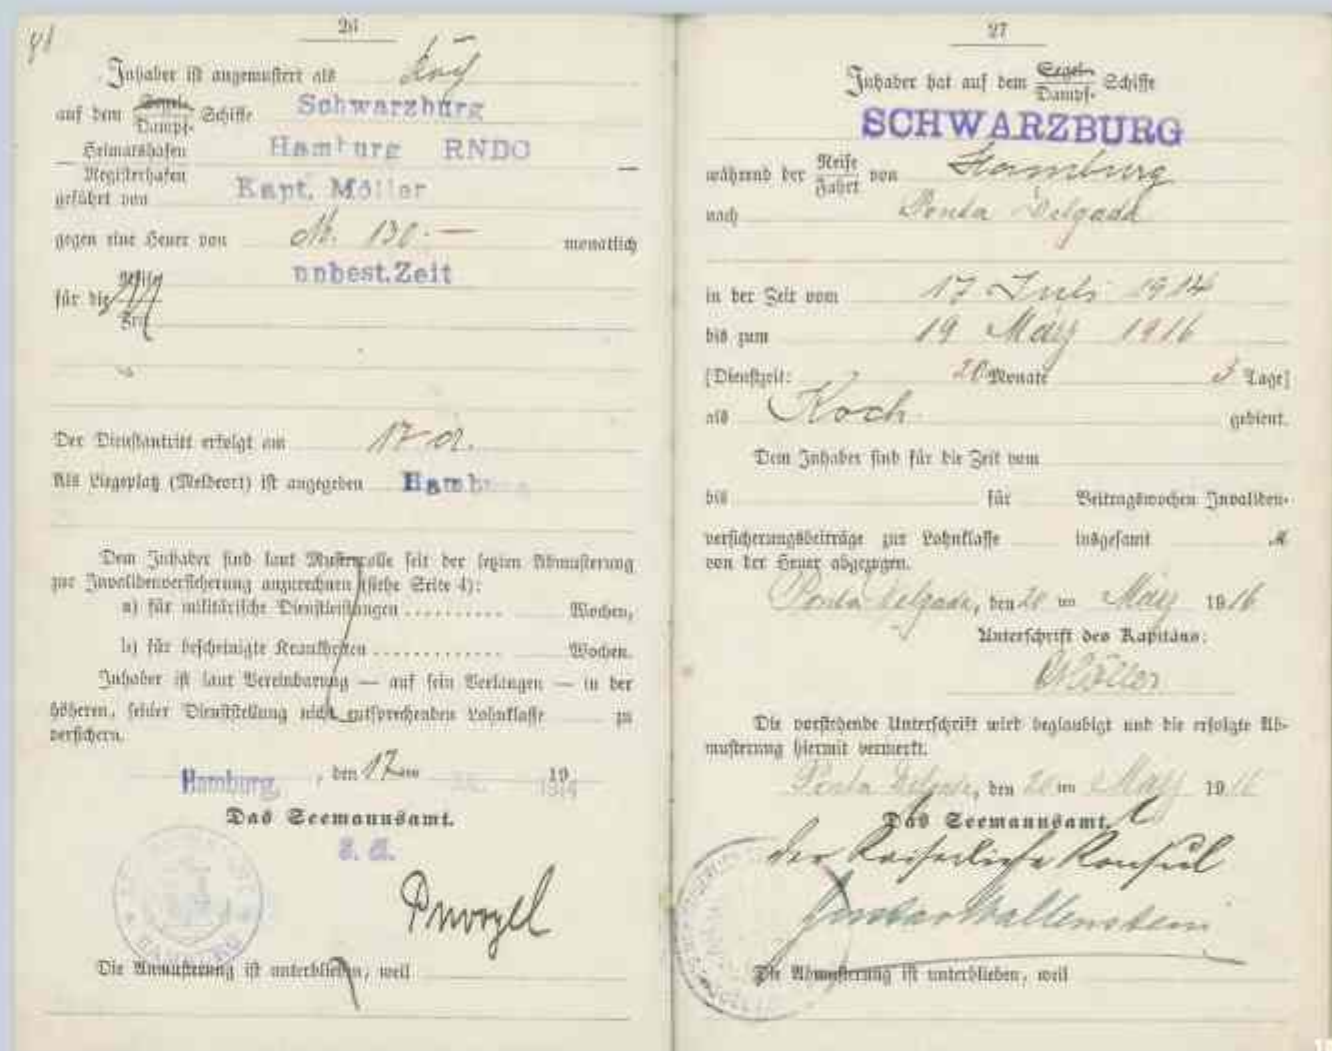 26
Inhaber ist angemustert als Koch
auf dem Segel- Dampf- Schiffe Schwarzburg
Heimatshafen Hamburg RNDO
Registerhafen
geführt von Kapt. Möller
gegen eine Heuer von M. 130.— monatlich
für die unbest. Zeit
Der Dienstantritt erfolgt am 17 d.
Als Liegeplatz (Meldeort) ist angegeben Hamburg
Dem Inhaber sind laut Musterrolle seit der letzten Abmusterung
zur Invalidenversicherung anzurechnen (siehe Seite 4):
a) für militärische Dienstleistungen .......... Wochen,
b) für bescheinigte Krankheiten ............. Wochen.
Inhaber ist laut Vereinbarung — auf sein Verlangen — in der
höheren, seiner Dienststellung nicht entsprechenden Lohnklasse zu
versichern.
Hamburg, , den 17ten 19 1914
Das Seemannsamt.
Die Anmusterung ist unterblieben, weil
27
Inhaber hat auf dem Segel- Dampf- Schiffe
SCHWARZBURG
während der Reise Fahrt von Hamburg
nach Ponta Delgada
in der Zeit vom 17 Juli 1914
bis zum 19 März 1916
[Dienstzeit: 20 Monate 3 Tage]
als Koch gedient.
Dem Inhaber sind für die Zeit vom
bis für Beitragswochen Invaliden-
versicherungsbeiträge zur Lohnklasse insgesamt M
von der Heuer abgezogen.
Ponta Delgada, den 20 ten März 1916
Unterschrift des Kapitäns:
Möller
Die vorstehende Unterschrift wird beglaubigt und die erfolgte Ab-
musterung hiermit vermerkt.
Ponta Delgada, den 20 ten März 1916
Das Seemannsamt.
der Kaiserliche Konsul
Wallenstein
Die Abmusterung ist unterblieben, weil